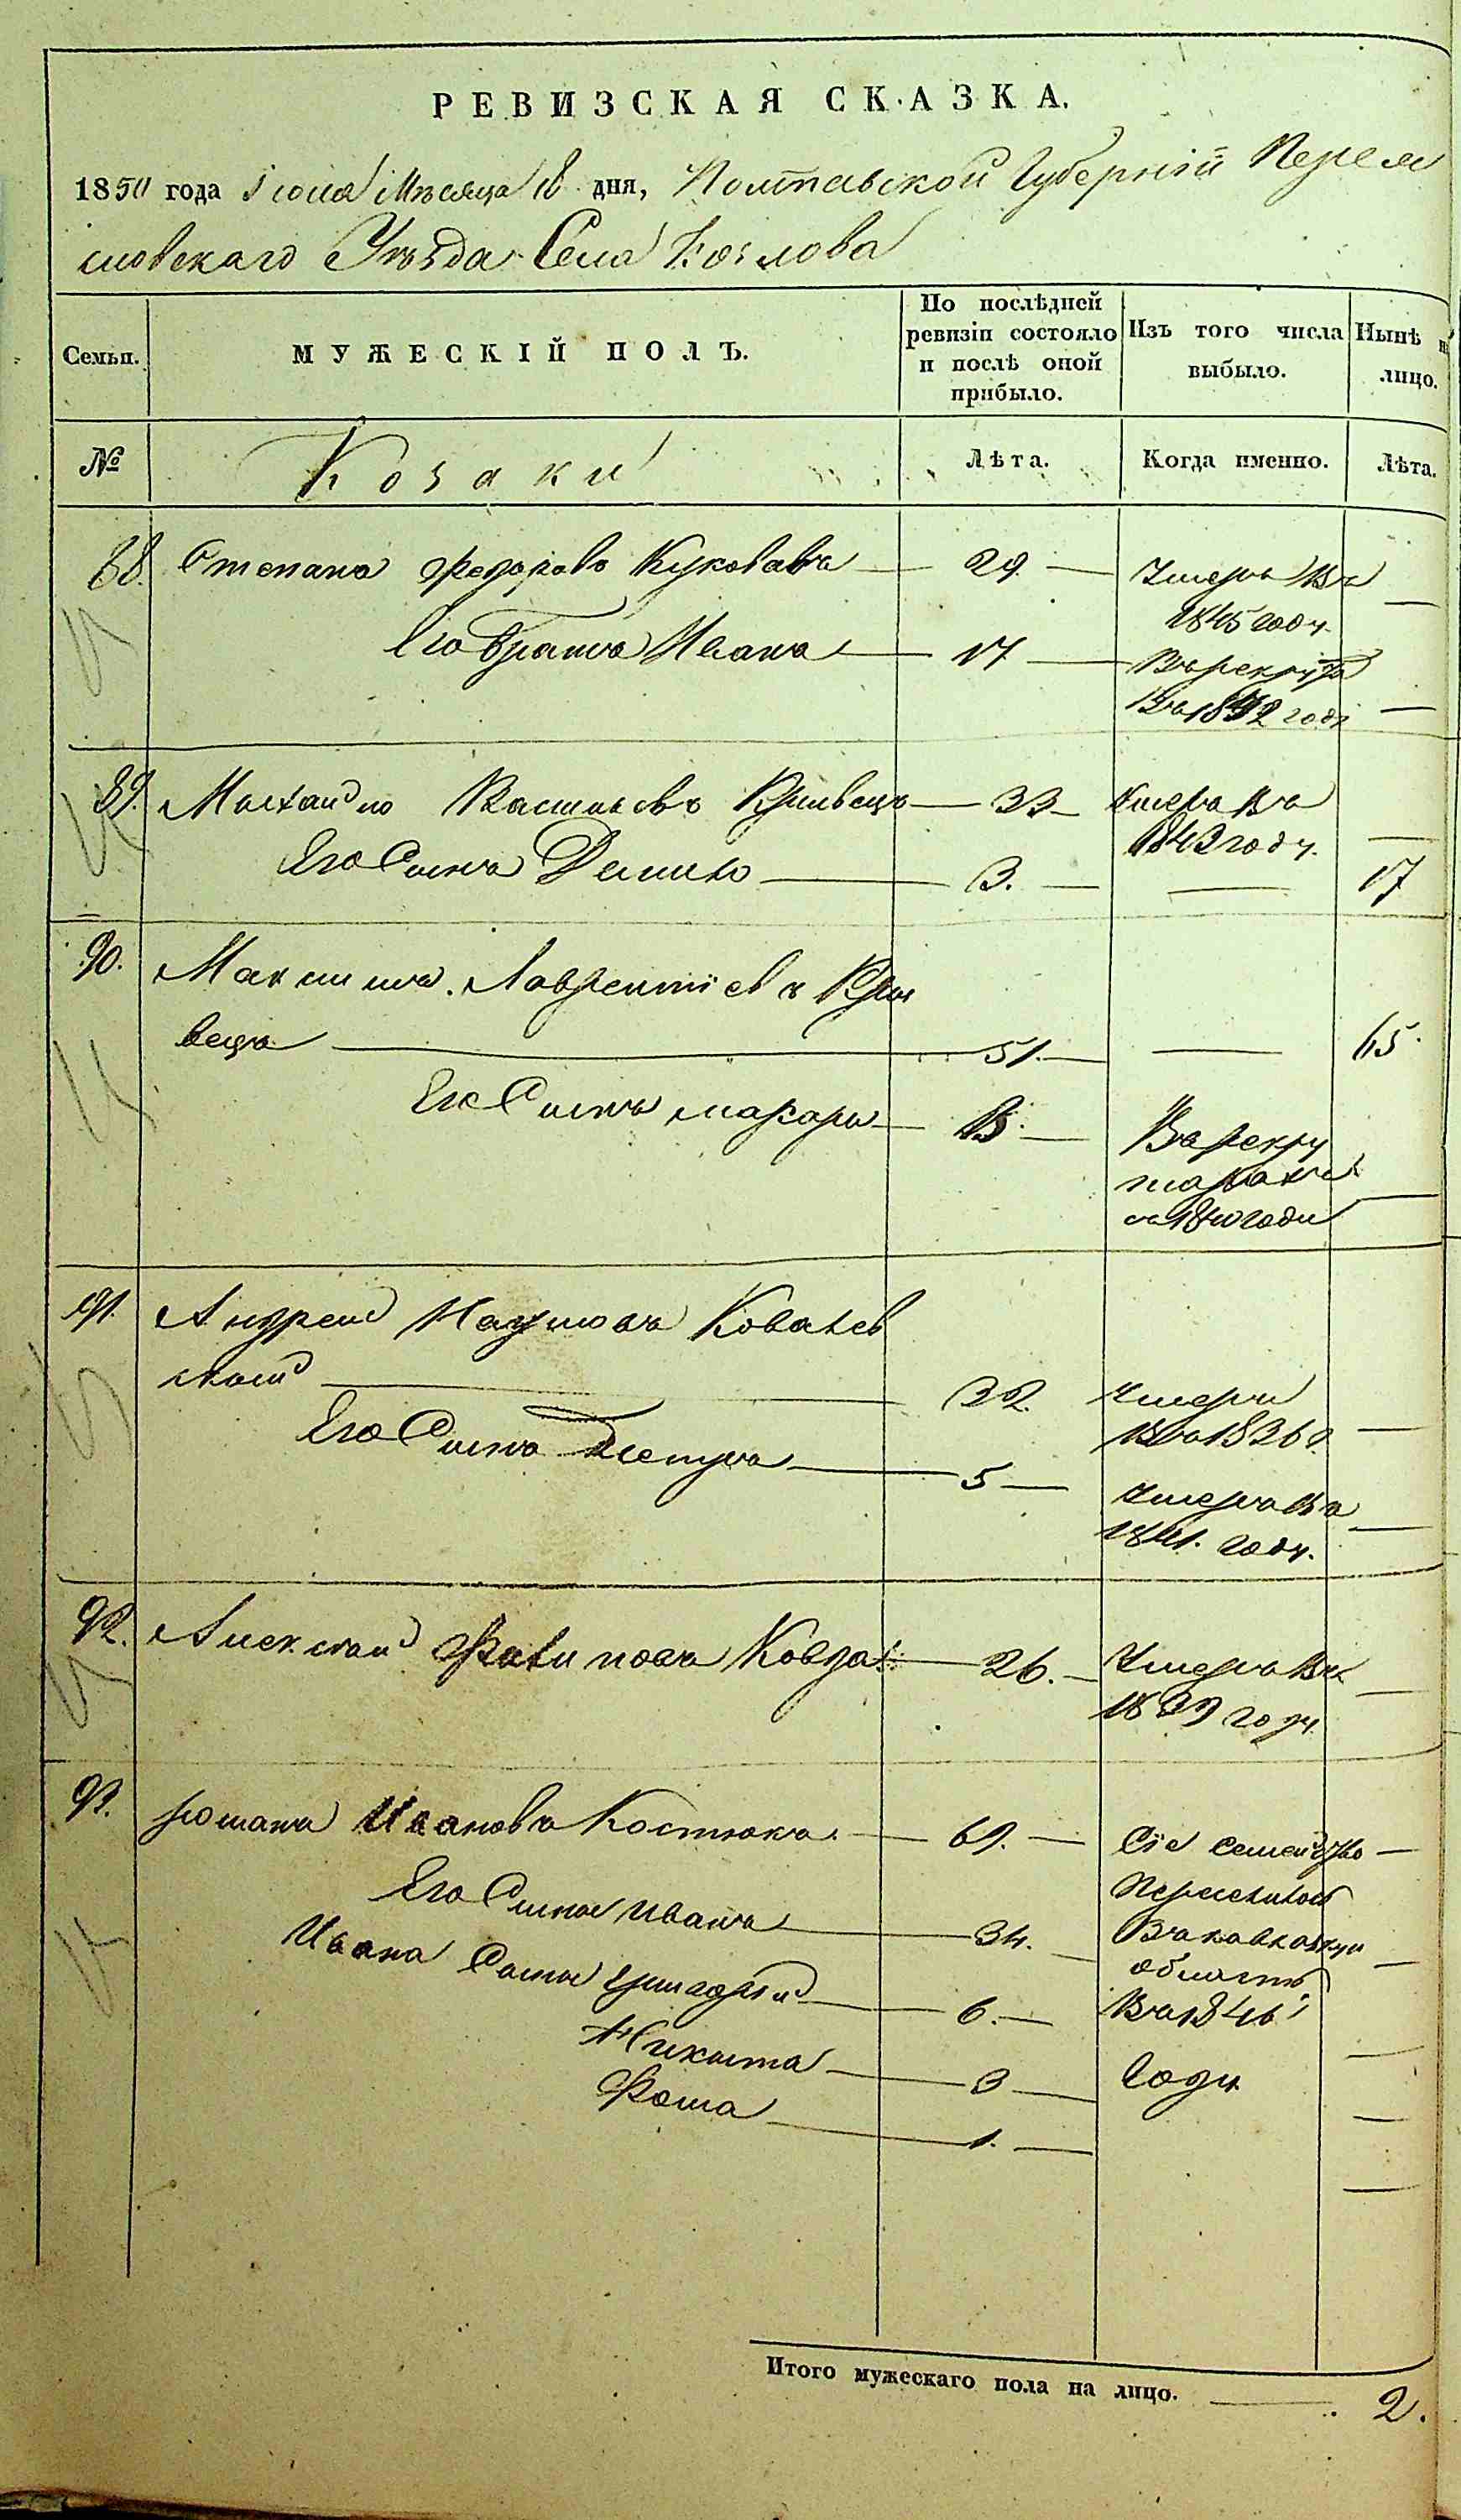 РЕВИЗСКАЯ СКАЗКА.
1850 года Іюля Мѣсяца дня, Полтавской Губерніи Перея
словскаго Уѣзда Села Козлова
Семьи.
МУЖЕСКІЙ ПОЛЪ.
По послѣдней ревизіи состояло и послѣ оной прибыло.
Изъ того числа выбыло.
Нынѣ на лицо.
№
Козаки
Лѣта.
Когда именно.
Лѣта.
88. Степанъ Федоровъ 29. Умеръ въ —
1845 году.
Его братъ Иванъ 17 Въ рекруты
Въ 18 2 годѣ —
89. Михайло Василіевъ Кривецъ 33 Умеръ въ
1843 году. —
Его Сынъ Демко 3. — 17
90. Максимъ Лаврентіевъ Кри
вецъ 51. — 65.
Его Сынъ Макаръ Въ рекру
тахъ
съ 1840 года —
91. Андрей Наумовъ Ковалев
скій 32. Умеръ
Въ 1836 г. —
Его Сынъ Петръ 5 Умеръ въ
1841. году. —
92. Алексѣй Филиповъ Ковза 26. Умеръ въ
1839 году —
93. Романъ Ивановъ Костюкъ 69. Сіе семейство —
Переселилось
Его Сынъ Иванъ 34. Въ Кавказкую —
область
Ивана Сыны Григорій 6. Въ 1846
Никита 3 Году —
Фома 1. —
—
Итого мужескаго пола на лицо. 2.